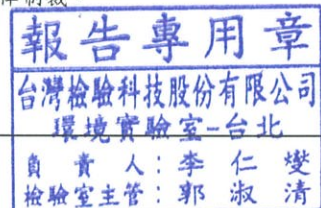 律制裁
報告專用章
台灣檢驗科技股份有限公司
環境實驗室-台北
負責人：李仁燮
檢驗室主管：郭淑清